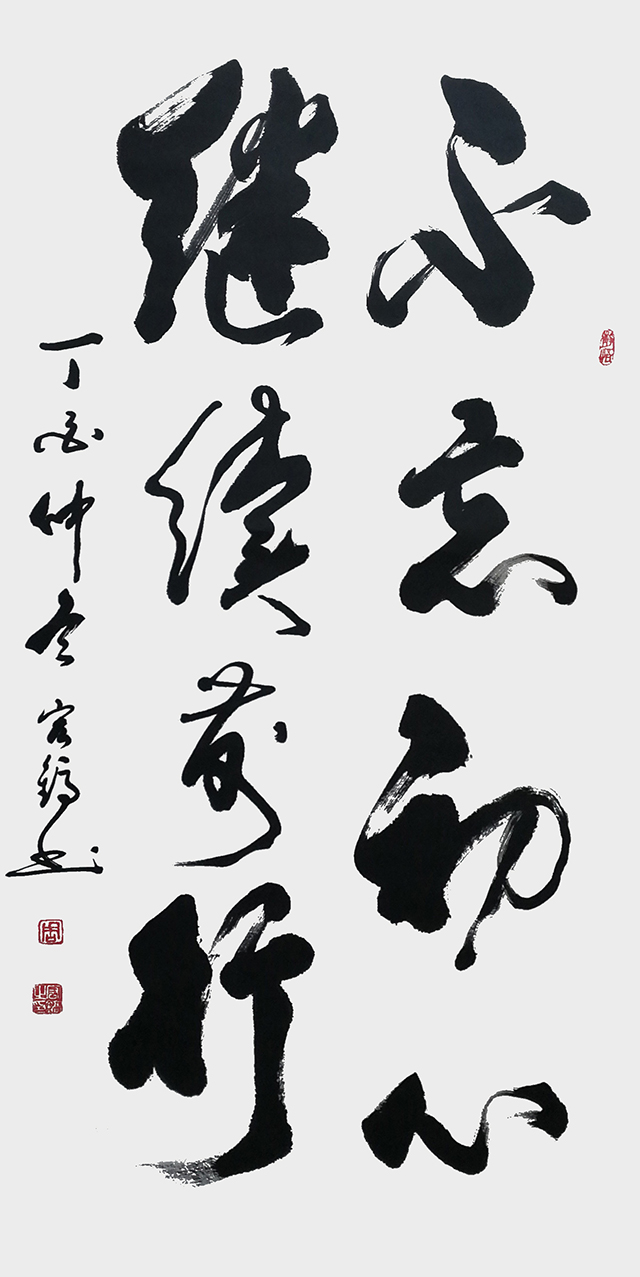 不忘初心
继续前行
丁酉仲冬 宏鹤书